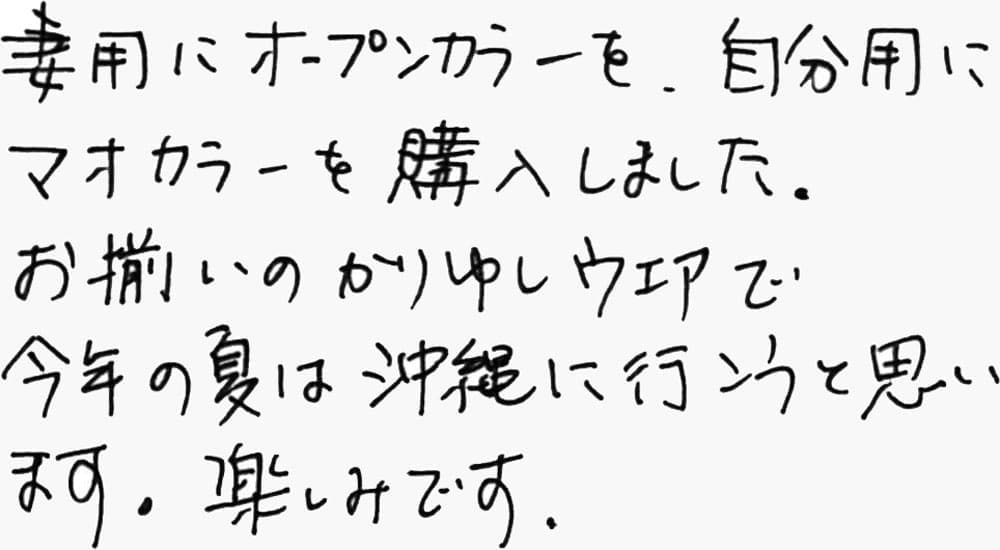 妻用にオープンカラーを.自分用に
マオカラーを購入しました.
お揃いのかりゆしウエアで
今年の夏は沖縄に行こうと思い
ます.楽しみです.